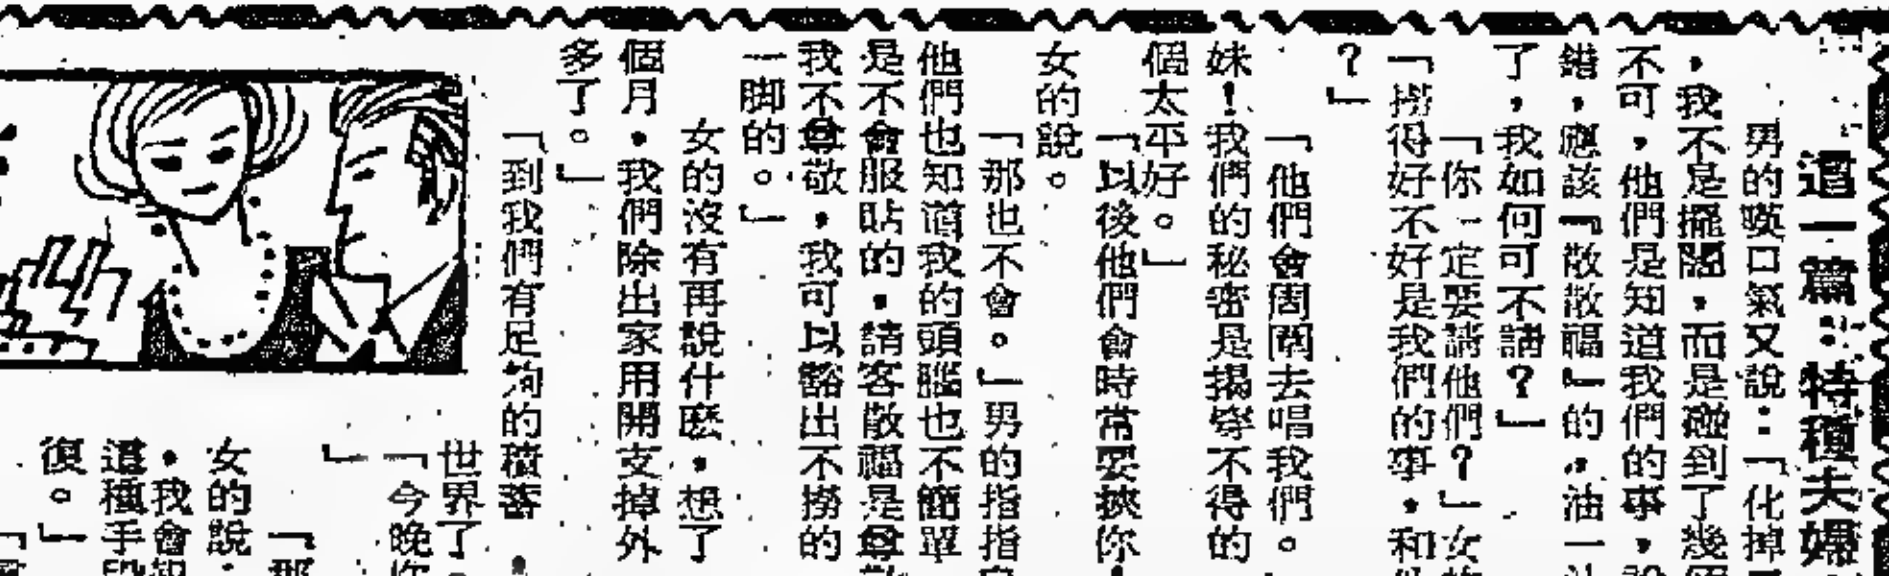 這一篇：特種夫婦
男的嘆口氣又說：「化掉
，我不是擺闊，而是碰到了幾個
不可，他們是知道我們的事，說
錯，應該『散散福』的，油一
了，我如何可不請？」
「你一定要請他們？」女的
「撈得好不好是我們的事，和他
？」
「他們會周圍去唱我們。
妹！我們的秘密是揭穿不得的
個太平好。」
「以後他們會時常要挾你！
女的說。
「那也不會。」男的指指自
他們也知道我的頭腦也不簡單
是不會服貼的，請客散福是尊敬
我不尊敬，我可以豁出不撈的
一脚的。」
女的沒有再說什麽，想了
個月，我們除出家用開支掉外
多了。」
「到我們有足夠的積蓄，
世界了。
「今晚你
」
「那
女的說：
，我會報
這種手段
復。」
「